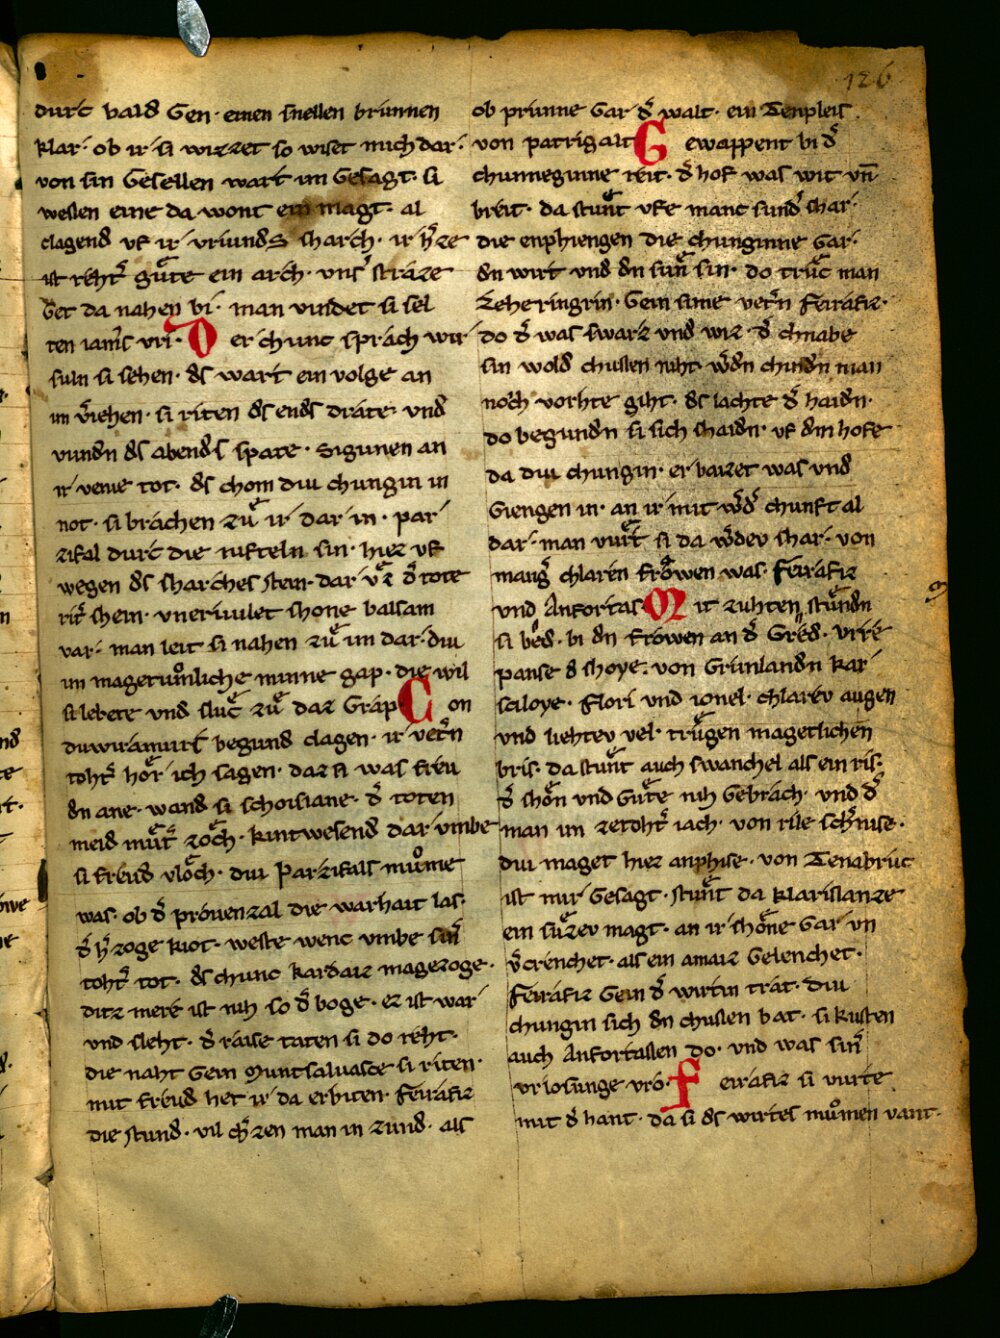 126
durc vald Gen · einen snellen brunnen
klar · ob ir si wizzet so wiset mich dar ·
von sin Gesellen wart im Gesagt · si
wessen eine da wont ein magt · al
clagend vf ir vriunds sharch · ir h̄ze
ist reht̄ guͤte ein arch · vns̄ straze
Get da nahen bi · man vindet si sel
ten iam̄s vri · D er chunc sprach wir
suln si sehen · ds wart ein volge an
im v̄iehen · si riten ds ends drate vnd
vundn ds abends spate · Sigunen an
ir venie tot · ds chom diu chungin in
not · si brachen zuͤ ir dar in · par
zifal durc die nifteln sin · hiez vf
wegen ds sharches stein · dar vͤz d̄ tote
rit̄ shein · vnerivulet shone balsam
var · man leit si nahen zuͤ im dar · diu
im magetuͦmliche minne gap · die wil
si lebete vnd sluͤc zuͤ daz Grap · C on
duwiramurs begund clagen · ir vet̄n
toht̄ hoͤr ich sagen · daz si was freu
dn ane · wand si schoisiane · d̄ toten
meid muͤt̄ zoͤch · kintwesend dar vmbe
si freud vloͤch · diu Parzifals muͦme
was · ob d̄ prouenzal die warhait las ·
d̄ h̄zoge kiot · weste wenc vmbe sin̄
toht̄ tot · ds chunc kardaiz magezoge ·
ditz mere ist nih so d̄ boge · ez ist war
vnd sleht · d̄ raise taten si do reht ·
die naht Gein Muntsaluasce si riten ·
mit freud het ir da erbiten · Feirafiz
die stund · vil ch̄zen man in zund · als
ob prunne Gar d̄ walt · ein Tenpleis
von patrigalt G ewappent bi d̄
chunneginne reit · d̄ hof was wit vn̄
breit · da stuͤnt vfe manc sund̄ shar ·
die enphiengen die chunginne Gar ·
dn wirt vnd dn sun̄ sin · do truͤc man
Leheringrin · Gein sime vet̄n Feirafiz ·
do d̄ was swarz vnd wiz · d̄ chnabe
sin wold chussen niht · w̄dn chindn man
noͤch vorhte giht · ds lachte d̄ haidn ·
do begundn si sich shaidn · vf dm hofe
da diu chungin · erbaizet was vnd
Giengen in · an ir mit w̄d̄ chunft al
dar · man vuͤrt si da w̄dev shar · von
manḡ chlaren froͤwen was · Feirafiz
vnd Anfortas · M it zuhten stuͤndn
si bed · bi dn frowen an d̄ Gred ·
panse d shoye · von Grunlandn kar
sciloye · Flori vnd ionel · chlarev augen
vnd liehtev vel · truͤgen magetlichen
bris · da stuͤnt auch swanchel als ein ris ·
d̄ shoͤn vnd Guͤte nih Gebrach · vnd d̄
man im zetoht̄ iach · von rile
diu maget hiez anphise · von Tenabruc
ist mir Gesagt · stuͤnt da klarislanze
ein suͤzev magt · an ir shoͤne Gar vn
v̄crenchet · als ein amaiz Gelenchet ·
Feirafiz Gein d̄ wirtin trat · diu
chungin sich dn chussen bat · si kusten
auch Anfortassen do · vnd was sin̄
vrlosunge vro · F eirafiz si vurte
mit d hant · da si ds wirtes muͦmen vant ·